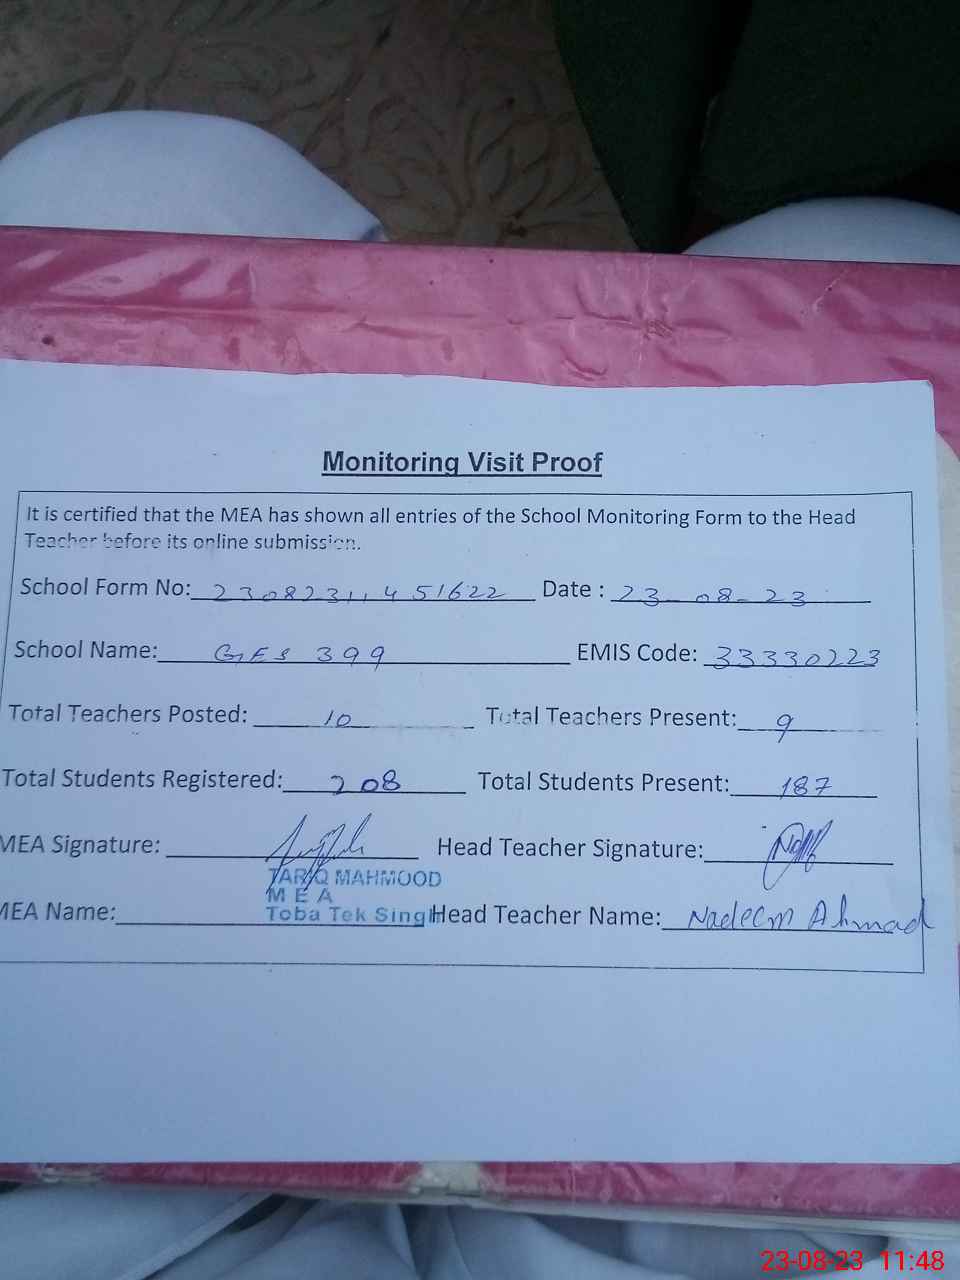 Monitoring Visit Proof
It is certified that the MEA has shown all entries of the School Monitoring Form to the Head
Teacher before its online submission.
School Form No: 230823114 51622 Date : 23-08-23
School Name: GES 399 EMIS Code: 33330223
Total Teachers Posted: 10 Total Teachers Present: 9
Total Students Registered: 208 Total Students Present: 187
MEA Signature: Head Teacher Signature:
TARIQ MAHMOOD
M E A
MEA Name: Toba Tek Singh Head Teacher Name: Nadeem Ahmad
23-08-23 11:48